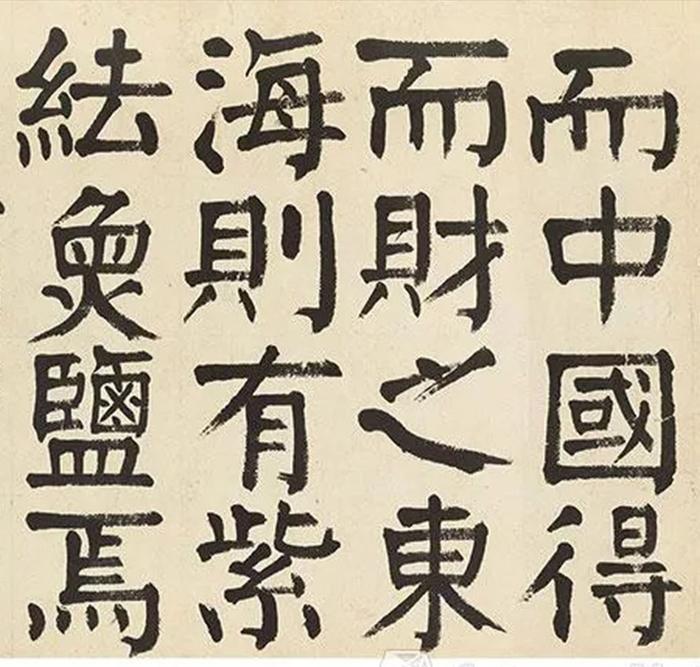 而中國得
而財之東
海則有紫
紶魚鹽焉